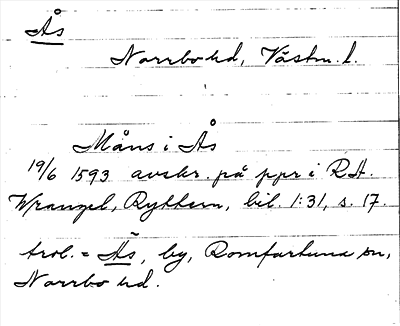 Ås
Norrbo hd, Västm. l.
Måns i Ås
19/6 1593 avskr. på ppr i RA.
Wrangel, Ryttern, bil. 1:31, s. 17.
trol. = Ås, by, Romfartuna sn,
Norrbo hd.